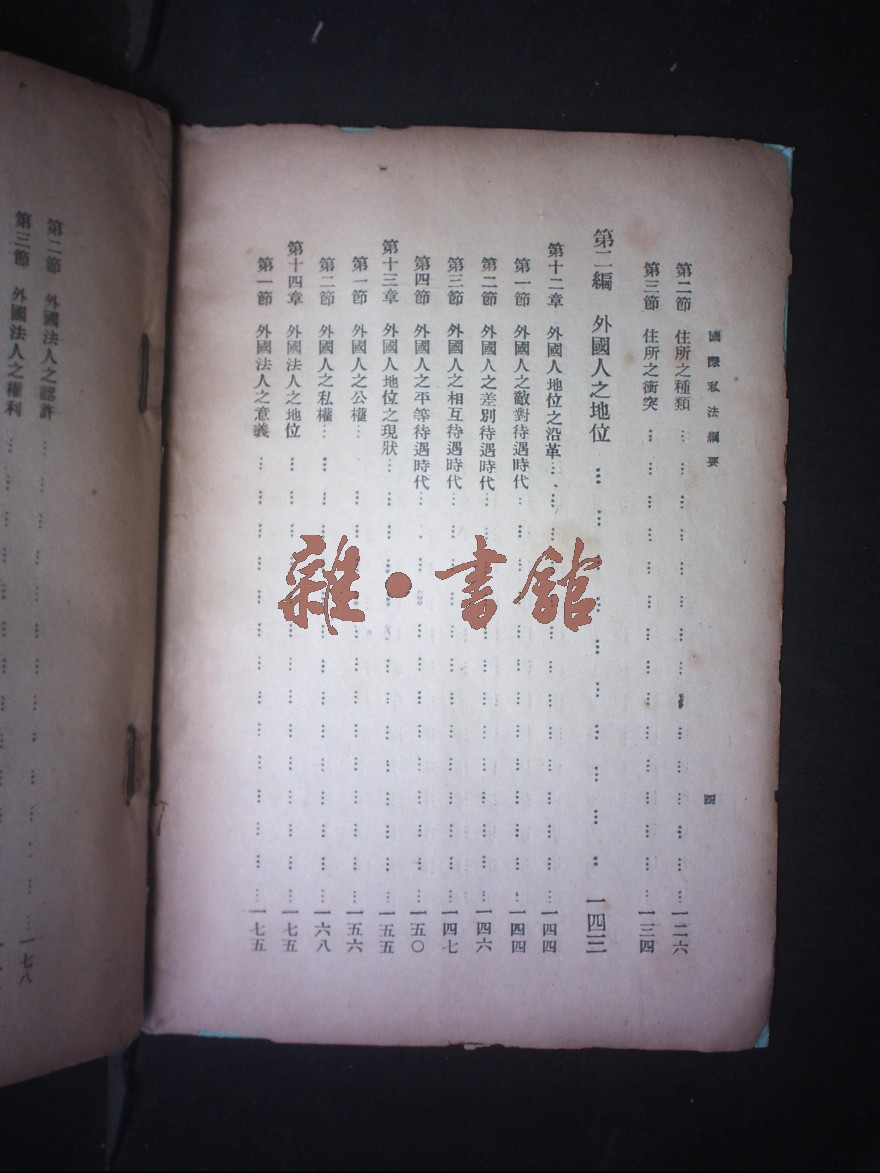 國際私法綱要
四
第二節 住所之種類 … 一二六
第三節 住所之衝突 … 一三四
第二編 外國人之地位 … 一四三
第十二章 外國人地位之沿革 … 一四四
第一節 外國人之敵對待遇時代 … 一四四
第二節 外國人之差別待遇時代 … 一四六
第三節 外國人之相互待遇時代 … 一四七
第四節 外國人之平等待遇時代 … 一五〇
第十三章 外國人地位之現狀 … 一五五
第一節 外國人之公權 … 一五六
第二節 外國人之私權 … 一六八
第十四章 外國法人之地位 … 一七五
第一節 外國法人之意義 … 一七五
第二節 外國法人之認許 … 一七八
第三節 外國法人之權利
雜·書館